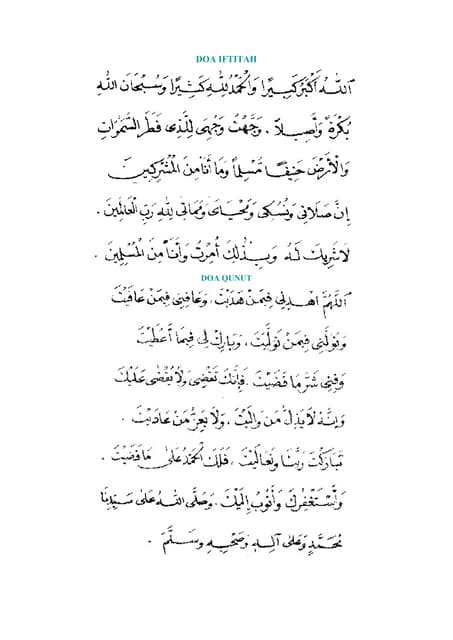 DOA IFTITAH
اَللهُ أَكْبَرُ كَبِيرًا وَالْحَمْدُ لِلَّهِ كَثِيرًا وَسُبْحَانَ اللهِ
بُكْرَةً وَأَصِيلًا . وَجَّهْتُ وَجْهِيَ لِلَّذِي فَطَرَ السَّمٰوَاتِ
وَالْأَرْضَ حَنِيفًا مُسْلِمًا وَمَا أَنَا مِنَ الْمُشْرِكِينَ
إِنَّ صَلَاتِي وَنُسُكِي وَمَحْيَايَ وَمَمَاتِي لِلهِ رَبِّ الْعَالَمِينَ .
لَا شَرِيكَ لَهُ وَبِذٰلِكَ أُمِرْتُ وَأَنَا مِنَ الْمُسْلِمِينَ .
DOA QUNUT
اَللّٰهُمَّ اهْدِنِي فِيمَنْ هَدَيْتَ ، وَعَافِنِي فِيمَنْ عَافَيْتَ
وَتَوَلَّنِي فِيمَنْ تَوَلَّيْتَ ، وَبَارِكْ لِي فِيمَا أَعْطَيْتَ
وَقِنِي شَرَّ مَا قَضَيْتَ . فَإِنَّكَ تَقْضِي وَلَا يُقْضٰى عَلَيْكَ
وَإِنَّهُ لَا يَذِلُّ مَنْ وَالَيْتَ ، وَلَا يَعِزُّ مَنْ عَادَيْتَ .
تَبَارَكْتَ رَبَّنَا وَتَعَالَيْتَ ، فَلَكَ الْحَمْدُ عَلٰى مَا قَضَيْتَ .
وَأَسْتَغْفِرُكَ وَأَتُوبُ إِلَيْكَ . وَصَلَّى اللهُ عَلٰى سَيِّدِنَا
مُحَمَّدٍ وَعَلٰى آلِهِ وَصَحْبِهِ وَسَلَّمَ .